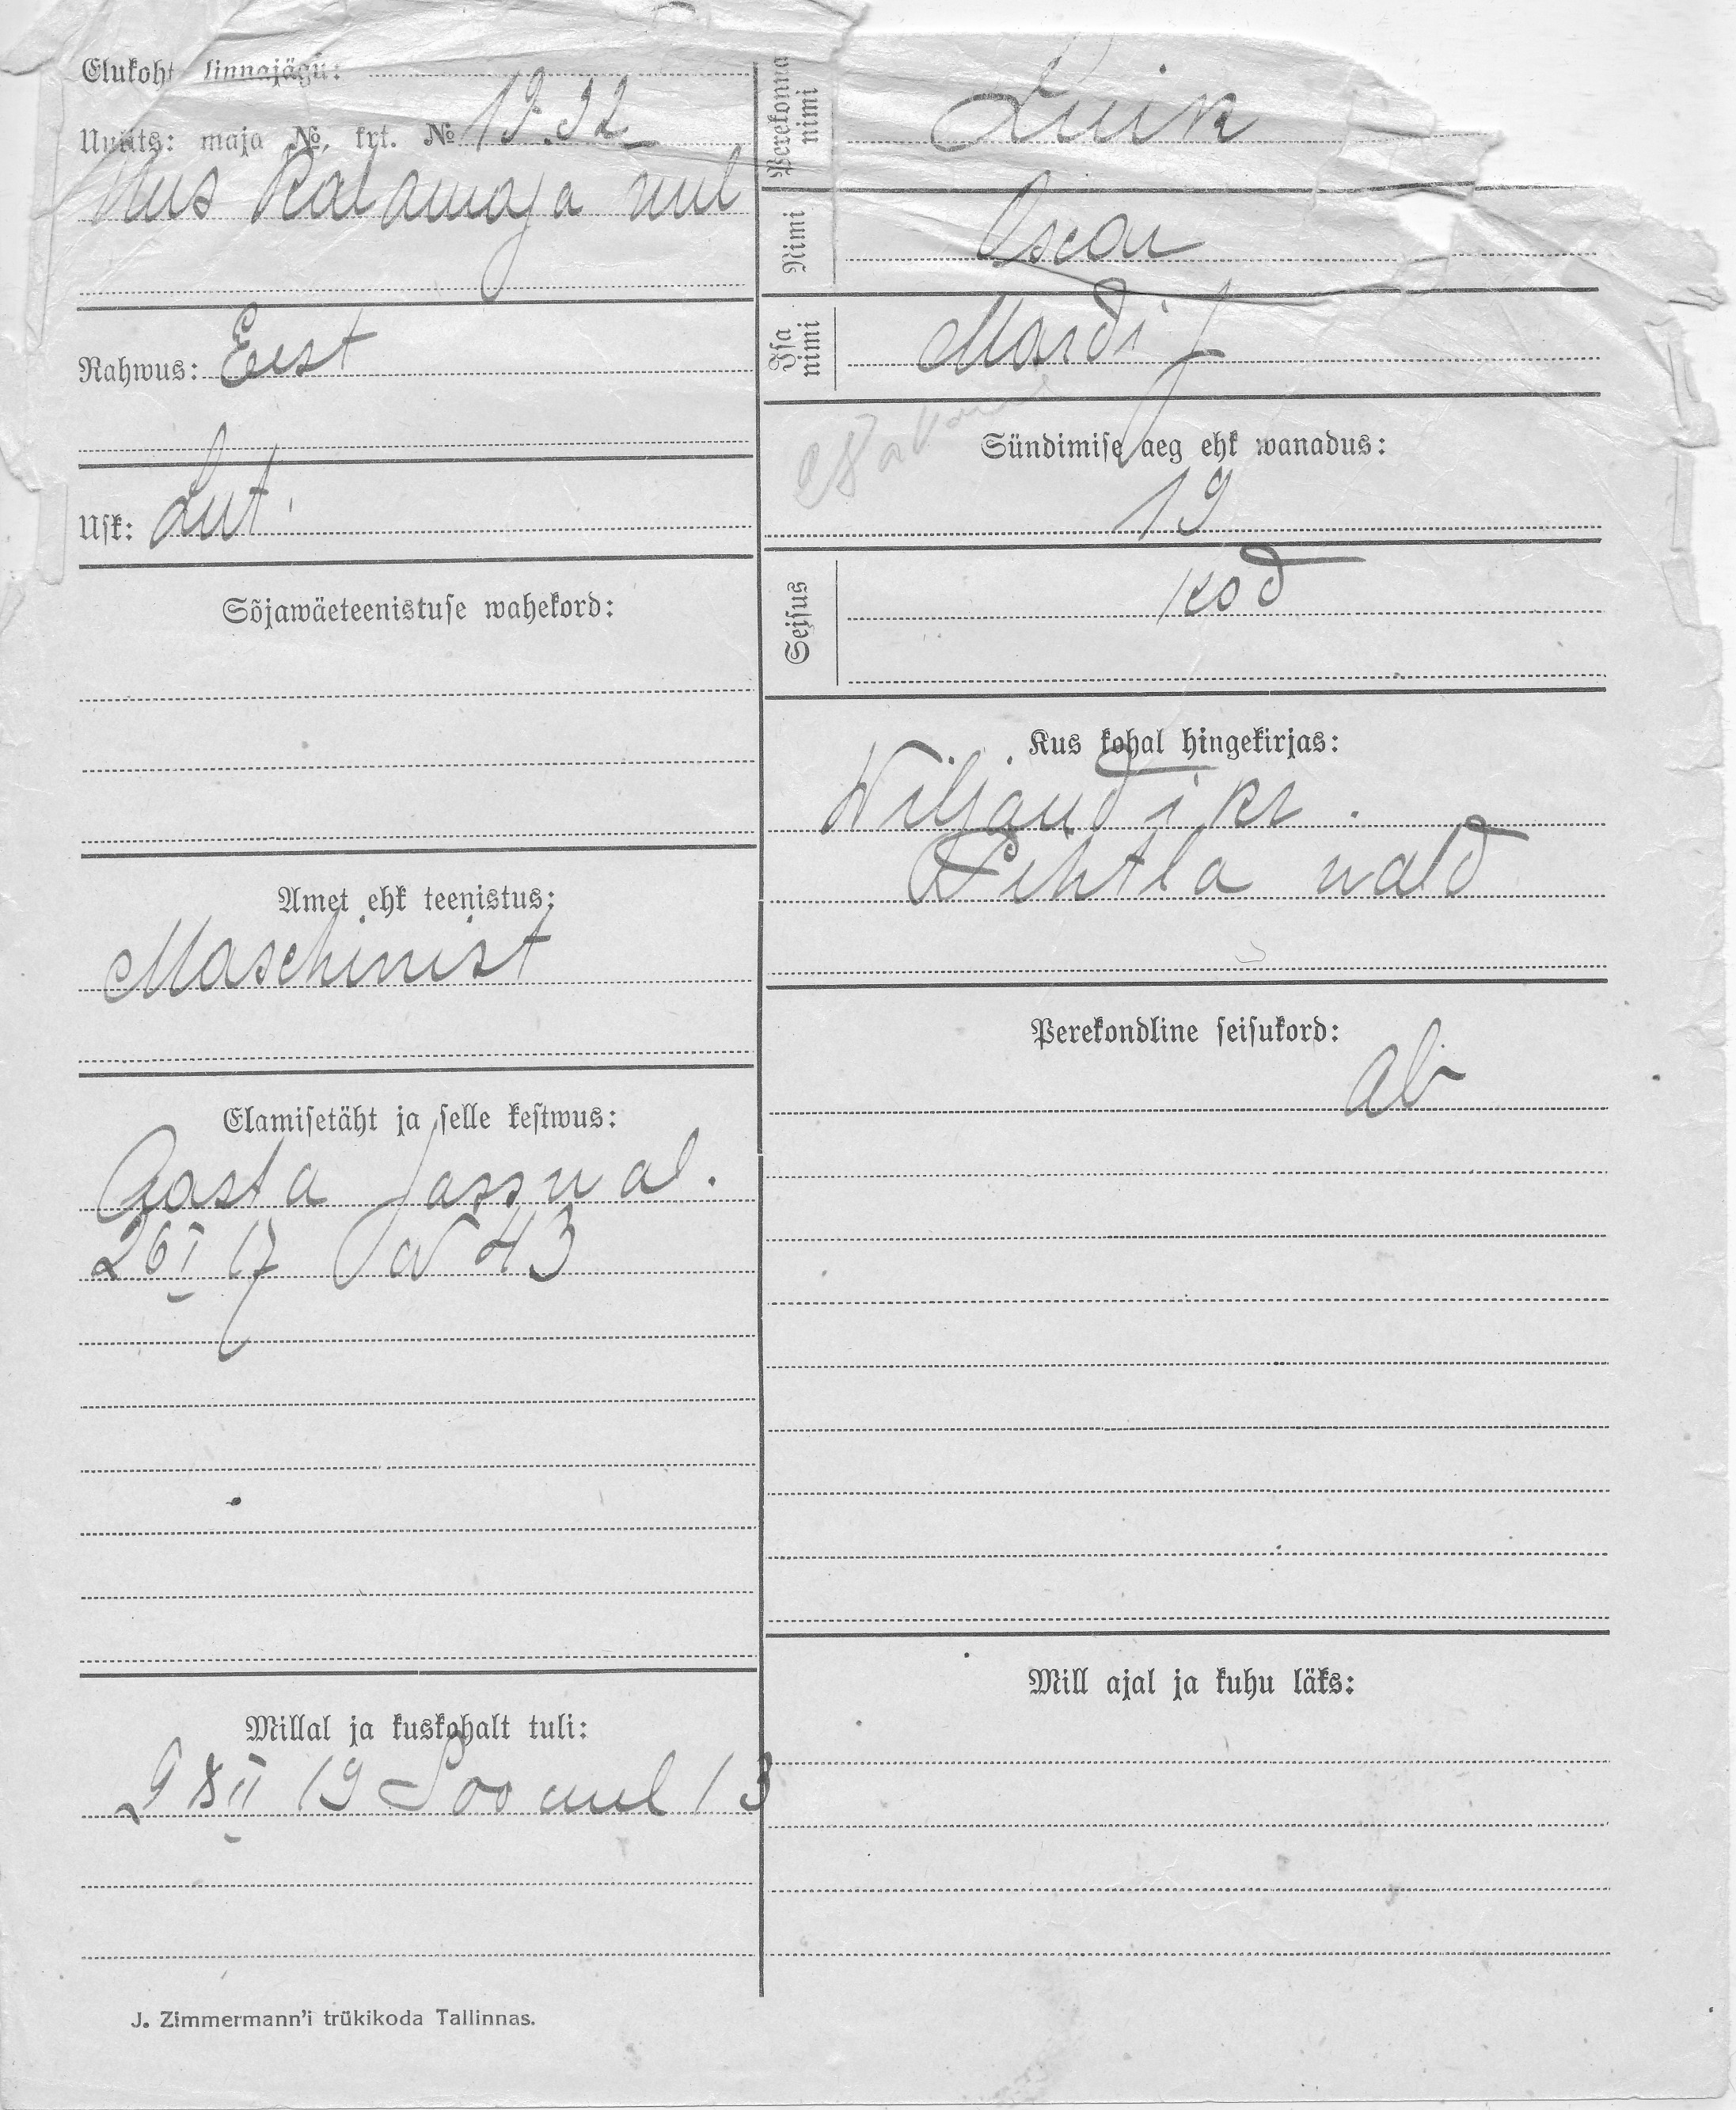 Elukoht linnajägu:
Uulits: maja №, krt. № 19.32
Uus Kalamaja uul
Rahwus: Eest
Usk: Lut.
Sõjawäeteenistuse wahekord:
Amet ehk teenistus:
Maschinist
Elamisetäht ja selle kestwus:
Aasta
26 I 17 № 43
Millal ja kuskohalt tuli:
9 XII 19 Soo uul 13
J. Zimmermann'i trükikoda Tallinnas.
Perekonna nimi Luik
Nimi Oscar
Isa nimi Mardi
Sündimise aeg ehk wanadus:
19
Seisus kod
Kus kohal hingekirjas:
Wiljandi kr.
wald
Perekondline seisukord:
ab
Mill ajal ja kuhu läks: